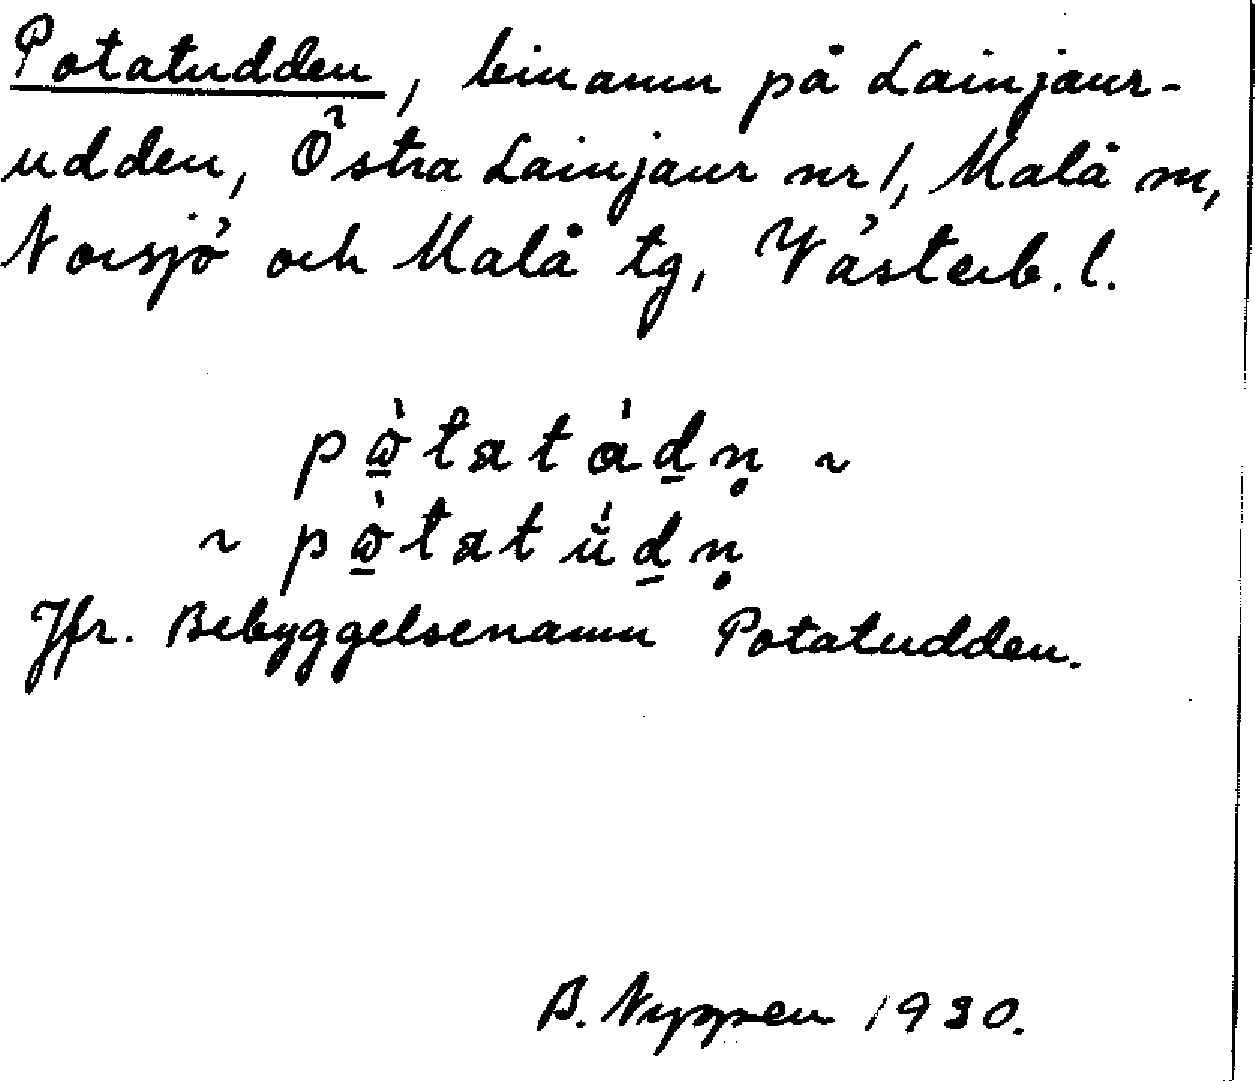 Potatudden, binamn på Lainjaur-
udden, Östra Lainjaur nr 1, Malå sn,
Norsjö och Malå tg, Västerb. l.
Jfr. Bebyggelsenamn Potatudden.
B. Nyppen 1930.